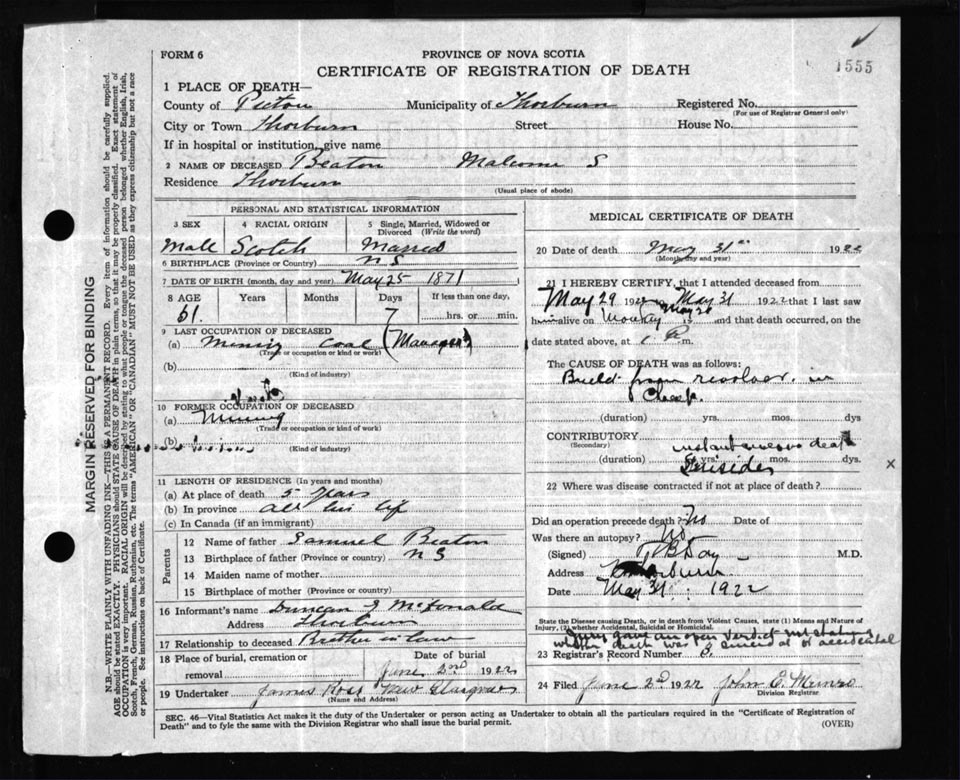 1555
FORM 6
PROVINCE OF NOVA SCOTIA
CERTIFICATE OF REGISTRATION OF DEATH
1 PLACE OF DEATH—
County of Pictou Municipality of Thorburn Registered No.
(For use of Registrar General only)
City or Town Thorburn Street House No.
If in hospital or institution, give name
2 NAME OF DECEASED Beaton Malcome S
Residence Thorburn
(Usual place of abode)
PERSONAL AND STATISTICAL INFORMATION
3 SEX 4 RACIAL ORIGIN 5 Single, Married, Widowed or Divorced (Write the word)
Male Scotch Married
6 BIRTHPLACE (Province or Country) N S
7 DATE OF BIRTH (month, day and year) May 25 1871
8 AGE Years Months Days If less than one day,
51. 7 hrs. or min.
9 LAST OCCUPATION OF DECEASED
(a) Mining Coal (Manager)
(Trade or occupation or kind or work)
(b)
(Kind of industry)
10 FORMER OCCUPATION OF DECEASED
(a) Mining
(Trade or occupation or kind of work)
(b)
(Kind of industry)
11 LENGTH OF RESIDENCE (In years and months)
(a) At place of death 5 years
(b) In province all his life
(c) In Canada (if an immigrant)
Parents
12 Name of father Samuel Beaton
13 Birthplace of father (Province or Country) N S
14 Maiden name of mother
15 Birthplace of mother (Province or Country)
16 Informant's name Duncan J. McDonald
Address Thorburn
17 Relationship to deceased Brother in law
18 Place of burial, cremation or removal Date of burial
June 2nd 1922
19 Undertaker James Ross New Glasgow
(Name and Address)
MEDICAL CERTIFICATE OF DEATH
20 Date of death May 31st 1922
(Month, day and year)
21 I HEREBY CERTIFY, that I attended deceased from
May 29 1922 May 31 1922 that I last saw
him alive on Monday May 29 19 and that death occurred, on
date stated above, at P. m.
The CAUSE OF DEATH was as follows:
Bullet from revolver in
(duration) yrs. mos. dys
CONTRIBUTORY instantaneous death
(Secondary)
(duration) yrs. mos. dys.
Suicides
x
22 Where was disease contracted if not at place of death?
Did an operation precede death? No Date of
Was there an autopsy? No
(Signed) M.D.
Address Thorburn
Date May 31: 1922
State the Disease causing Death, or in death from Violent Causes, state (1) Means and Nature of Injury, (2) whether Accidental, Suicidal or Homicidal.
Jury gave an open verdict not stating
whether death was suicidal or accidental
23 Registrar's Record Number
24 Filed June 2nd 1922 John C. Munro
Division Registrar
SEC. 46—Vital Statistics Act makes it the duty of the Undertaker or person acting as Undertaker to obtain all the particulars required in the "Certificate of Registration of
Death" and to fyle the same with the Division Registrar who shall issue the burial permit. (OVER)
MARGIN RESERVED FOR BINDING
N.B.—WRITE PLAINLY WITH UNFADING INK—THIS IS A PERMANENT RECORD. Every item of information should be carefully supplied.
AGE should be stated EXACTLY. PHYSICIANS should STATE CAUSE OF DEATH in plain terms, so that it may be properly classified. Exact statement of
OCCUPATION is very important. RACIAL ORIGIN will be described by stating to what people or tongue the deceased person belonged whether English, Irish,
Scotch, French, German, Russian, Ruthenian, etc. The terms "AMERICAN" OR "CANADIAN" MUST NOT BE USED as they express citizenship but not a race
or people. See instructions on back of Certificate.